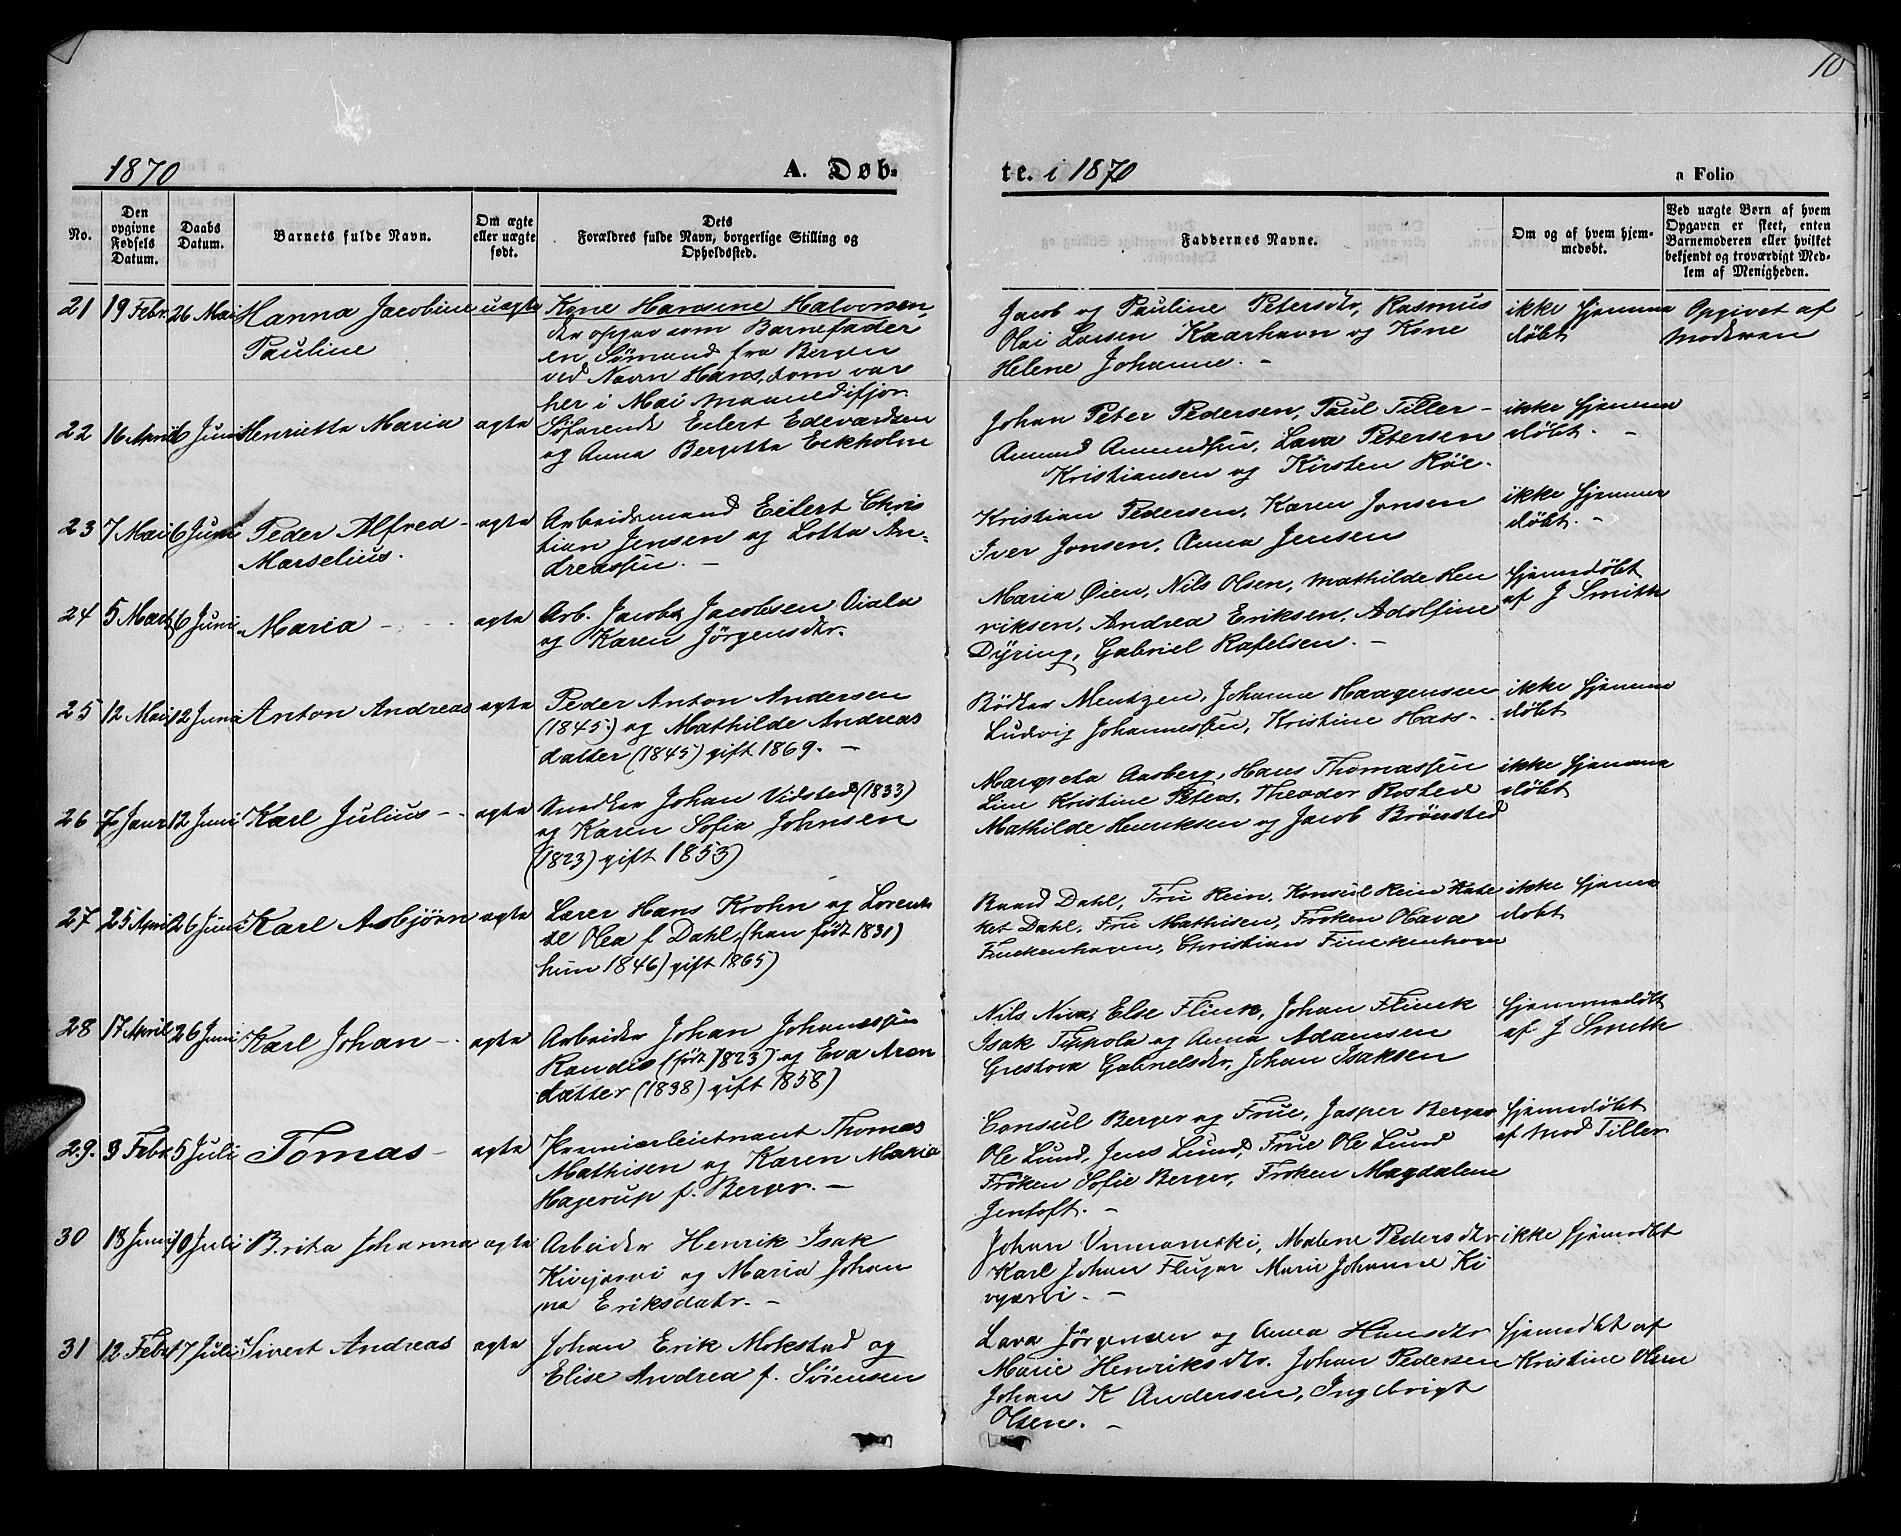 10
1870
A. Døb-
te. i 1870
n Folio
No.
Den opgivne Fødsels Datum.
Daabs Datum.
Barnets fulde Navn.
Om ægte eller uægte født.
Dets Forældres fulde Navn, borgerlige Stilling og Opholdssted.
Faddernes Navne.
Om og af hvem hjemmedøbt.
Ved uægte Børn af hvem Opgaven er skeet, enten Barnemoderen eller hvilket bekjendt og troværdigt Medlem af Menigheden.
21 19 Febr. 26 Mai Hanna Jacobine uægte Kone Hansine Halvorsen
Pauline
der opgav som Barnefader
en Sømand fra Bergen
ved Navn Hans, som var
her i Mai Maaned ifjor
Jacob og Pauline Petersdtr, Rasmus
Olai Larsen Kaarhavn og Kone
Helene Johanne. -
ikke hjemme
døbt
Opgivet af
Moderen
22 16 April 6 Juni Henriette Maria ægte Søfarende Eilert Edevardsen
og Anna Bergitta Eckholm
Johan Peter Pedersen, Paul Tiller -
Amund Amundsen, Lava Petersen
Kristiansen og Kirsten Röe.
ikke hjemme
døbt. -
23 7 Mai 6 Juni Peder Alfred - ægte Arbeidsmand Eilert Chris
Marselius.
tian Jensen og Lotta An-
dreassen. -
Kristian Pedersen, Karen Jonsen
Iver Jonsen, Anna Jensen
ikke hjemme
døbt. -
24 5 Marts 6 Juni Maria - ægte Arb. Jacob Jacobsen Oiala
og Karen Jörgensdtr.
Maria Øien, Nils Olsen, Mathilde Hen
riksen, Andrea Eriksen, Adolfine
Dÿring, Gabriel Rafelsen. -
hjemmedøbt
af J Smith
25 12 Mai 12 Juni Anton Andreas ægte Peder Anton Andersen
(1845) og Mathilde Andreas
datter (1845) gift 1869. -
Bødker Mentzen, Johanne Haagensen
Ludvig Johannessen, Kristine Hass -
ikke hjemme
døbt
26 7 Janr 12 Juni Karl Julius - ægte Snedker Johan Vidsted (1833)
og Karen Sofia Johnsen
(1823) gift 1853)
Margreta Aasberg, Hans Thomassen
Line Kristine Peters, Theodor Rosted
Mathilde Henriksen og Jacob Brönsted
ikke hjemme
døbt
27 25 April 26 Juni Karl Asbjörn ægte Lærer Hans Krohn og Lorent
ze Olea f Dahl, (han født 1831)
hun 1846) gift 1865)
Baard Dahl, Fru Rein, Konsul Rein
ket Dahl, Fru Mathisen, Froken Olava
Finckenhagen, Christian Finckenhagen
ikke hjemme
døbt
28 17 April 26 Juni Karl Johan - ægte Arbeider Johan Johanessen
Randis (født 1823) og Eva Aron
datter (1838) gift 1858)
Nils Niva, Else Flink, Johan Flinck
Isak Tippola og Anna Adamsen
Gustava Gabrielsdtr, Johan Isaksen
hjemmedøbt
af J Smith
29. 3 Febr 5 Juli Tomas - ægte Premierleietnant Thomas
Mathisen og Karen Maria
Hagerup f. Berger. -
Consul Berger og Frue, Jasper Berger
Ole Lund, Jens Lund, Frue Ole Lund
Fröken Sofie Berger, Froken Magdalene
Jentoft. -
hjemmedøbt
af Mod Tiller
30 18 Juni 10 Juli Brita Johanna ægte Arbeider Henrik Isak
Kivijarvi og Maria Johan
na Eriksdatr. -
Johan Unnamski, Malene Pedersdtr
Karl Johan Flugar Marie Johanne Ki
vijærvi. -
ikke hjemdøbt
31 12 Febr 17 Juli Sivert Andreas ægte Johan Erik Mokstad og
Elise Andrea f. Sörensen
Lava Jørgensen og Anna Hansdtr
Marie Henriksdtr. Johan Pedersen
Johan K Andersen, Ingebrigt
Olsen. -
hjemdøbt af
Kristine Olsen